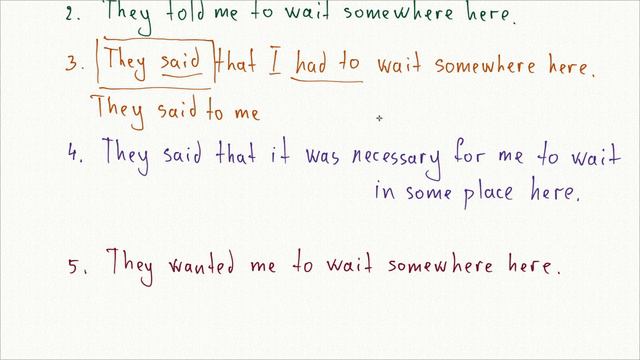 2. They told me to wait somewhere here.
3. They said that I had to wait somewhere here.
They said to me
4. They said that it was necessary for me to wait
in some place here.
5. They wanted me to wait somewhere here.